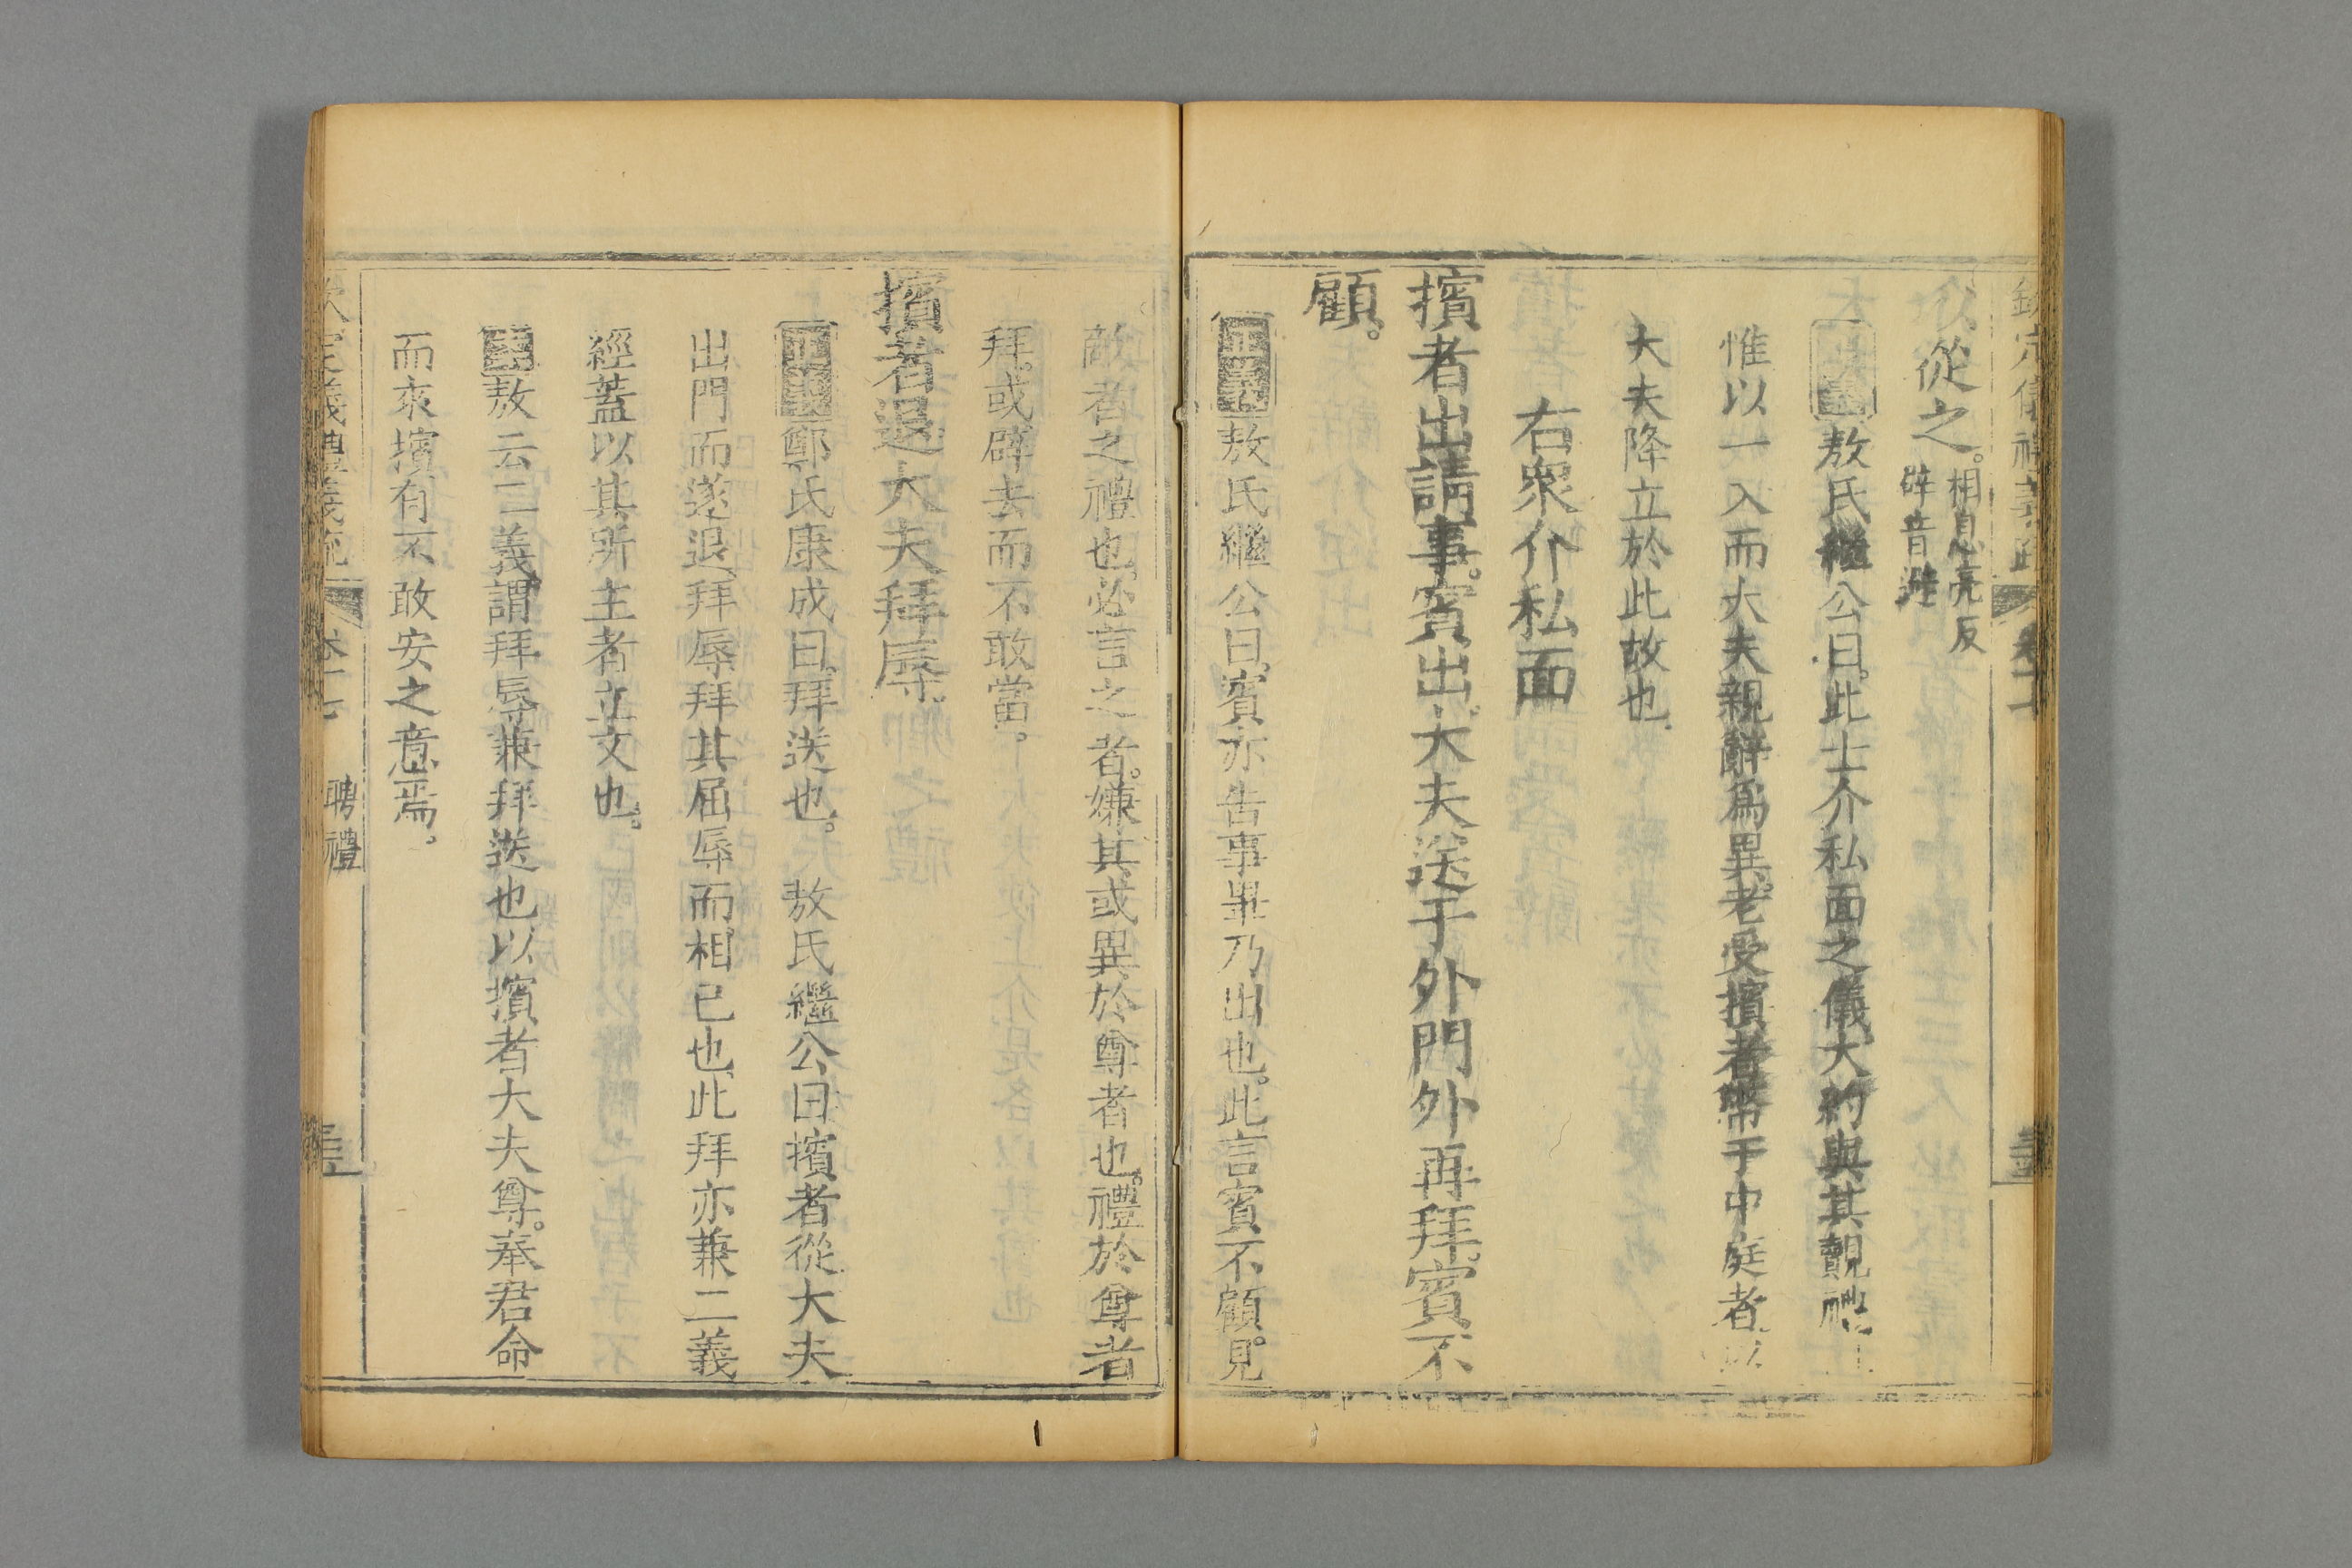 從之。相息亮反辟音避
正義敖氏繼公曰。此士介私面之儀。大約與其覿禮
惟以一入而大夫親辭爲異。老受擯者幣于中庭者。以
大夫降立於此故也。
右衆介私面
擯者出請事。賓出。大夫送于外門外再拜。賓不
顧。
正義敖氏繼公曰。賓亦告事畢乃出也。此言賓不顧。見
敵者之禮也。必言之者。嫌其或異於尊者也。禮於尊者
拜。或辟去而不敢當。
擯者退大夫拜辱。
正義鄭氏康成曰。拜送也。 敖氏繼公曰擯者從大夫
出門而遂退。拜辱拜其屈辱而相己也。此拜亦兼二義
經蓋以其所主者立文也。
敖云二義。謂拜辱兼拜送也以擯者大夫尊。奉君命
而來擯。有不敢安之意焉。
聘禮